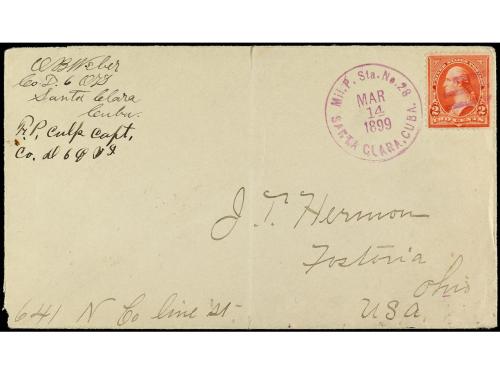 O B Weber
Co. D. 6 O V I
Santa Clara
Cuba.
F. P. Culp Capt,
Co. D 6 O V I
MIL. P. Sta. No. 28
MAR
14
1899
SANTA CLARA, CUBA.
2 2
TWO CENTS
J. T. Hermon
Fostoria
Ohio
USA.
641 N Co line St.